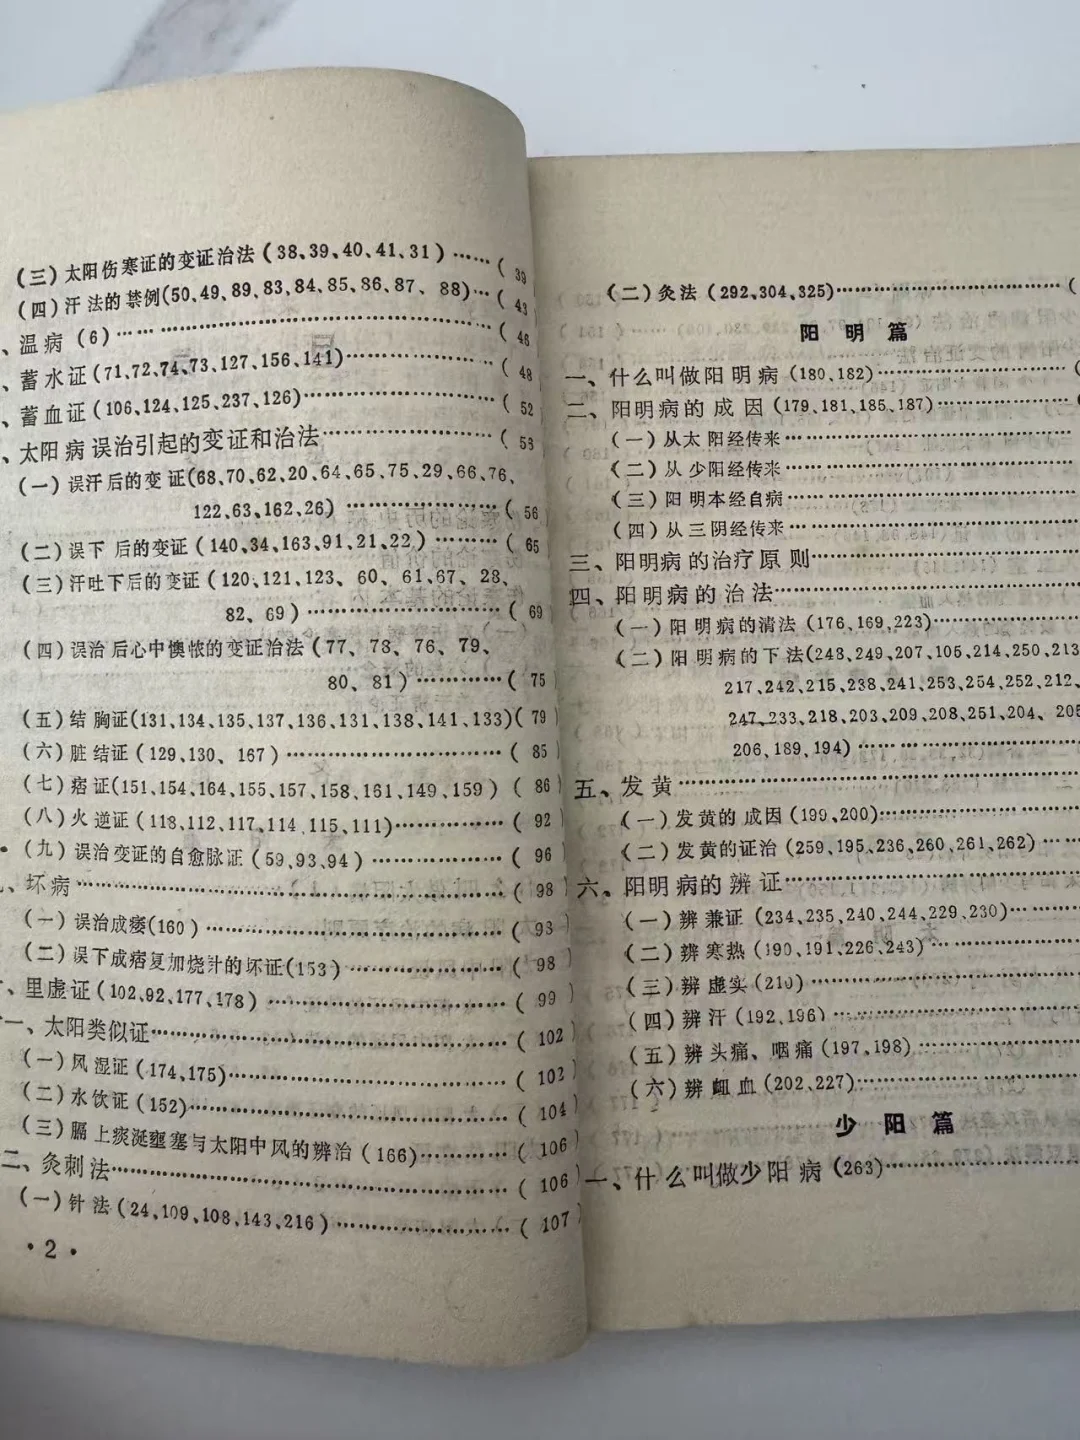 (三)太阳伤寒证的变证治法(38、39、40、41、31)……( 39
(四)汗法的禁例(50、49、89、83、84、85、86、87、88)…( 43
、温病(6)……( 46
、蓄水证(71、72、74、73、127、156、141)……( 48
、蓄血证(106、124、125、237、126)……( 52
、太阳病误治引起的变证和治法……( 53
(一)误汗后的变证(68、70、62、20、64、65、75、29、66、76、
122、63、162、26)……( 56
(二)误下后的变证(140、34、163、91、21、22)……( 65
(三)汗吐下后的变证(120、121、123、60、61、67、28、
82、69)……( 69
(四)误治后心中懊憹的变证治法(77、78、76、79、
80、81)……( 75
(五)结胸证(131、134、135、137、136、131、138、141、133)( 79
(六)脏结证(129、130、167)……( 85
(七)痞证(151、154、164、155、157、158、161、149、159)( 86
(八)火逆证(118、112、117、114、115、111)……( 92
(九)误治变证的自愈脉证(59、93、94)……( 96
、坏病……( 98
(一)误治成痿(160)……( 93
(二)误下成痞复加烧针的坏证(153)……( 98
、里虚证(102、92、177、178)……( 99
一、太阳类似证……( 102
(一)风湿证(174、175)……( 102
(二)水饮证(152)……( 104
(三)膈上痰涎壅塞与太阳中风的辨治(166)……( 106
二、灸刺法……( 106
(一)针法(24、109、108、143、216)……( 107
·2·
(二)灸法(292、304、325)……(
阳明篇
一、什么叫做阳明病(180、182)……
二、阳明病的成因(179、181、185、187)……
(一)从太阳经传来……
(二)从少阳经传来……
(三)阳明本经自病……
(四)从三阴经传来……
三、阳明病的治疗原则……
四、阳明病的治法……
(一)阳明病的清法(176、169、223)……
(二)阳明病的下法(248、249、207、105、214、250、213
217、242、215、238、241、253、254、252、212、
247、233、218、203、209、208、251、204、205
206、189、194)……
五、发黄……
(一)发黄的成因(199、200)……
(二)发黄的证治(259、195、236、260、261、262)……
六、阳明病的辨证……
(一)辨兼证(234、235、240、244、229、230)……
(二)辨寒热(190、191、226、243)……
(三)辨虚实(210)……
(四)辨汗(192、196)……
(五)辨头痛、咽痛(197、198)……
(六)辨衄血(202、227)……
少阳篇
一、什么叫做少阳病(263)……